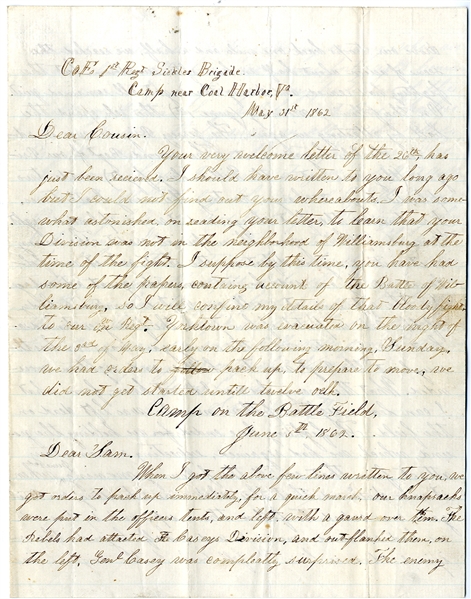 Co F. 1st Regt Sickles Brigade.
Camp near Coal Harbor, Va.
May 31st 1862
Dear Cousin.
Your very welcome letter of the 26th, has
just been recieved. I should have written to you long ago
but I could not find out your whereabouts. I was some
what astonished, on reading your letter, to learn that your
Division was not in the neighborhood of Williamsburg at the
time of the fight. I suppose by this time, you have had
some of the papers, containg account of the Battle of Wil-
liamsburg, so I will confine my details of that bloody fight
to our own Regt. Yorktown was evacuated on the night of
the 3rd of May, early on the following morning, Sunday,
we had orders to pack up, to prepare to move, we
did not get started untill twelve oclk.
Camp on the Battle Field.
June 5th, 1862.
Dear Sam.
When I got the above few lines written to you, we
got orders to pack up immediately, for a quick march, our knapsacks
were put in the officers tents, and left with a gaurd over them. The
Rebels had attacted Caseys Division, and outflanked them, on
the left, Genl Casey was compleatly surprised. The enemy